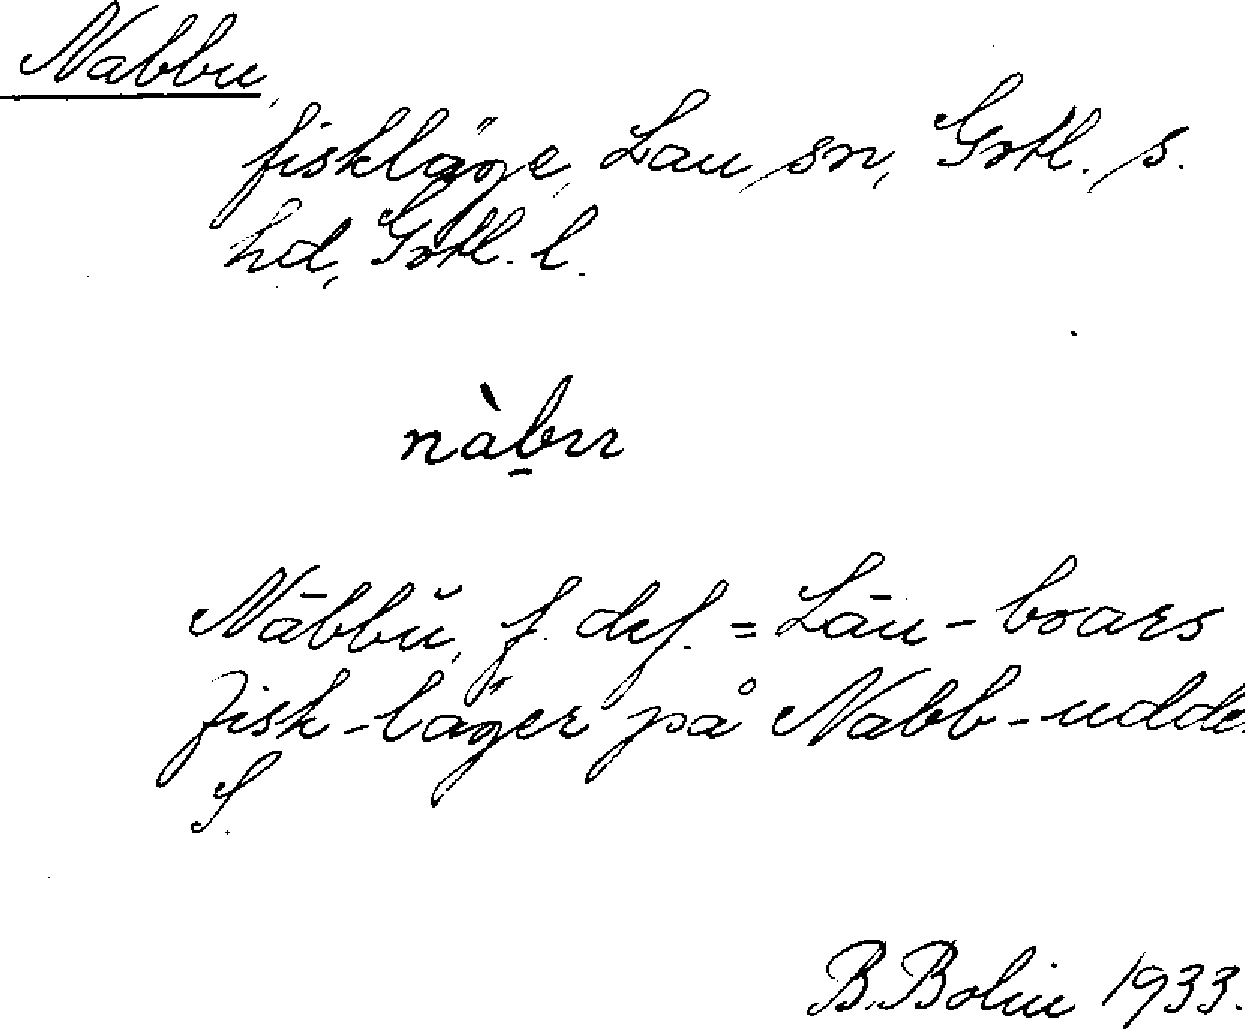 Nabbu,
fiskläge, Lau sn, Gotl. s.
hd, Gotl. l.
nàb̠u
Nābbŭ, f. def. = Lāu-boars
fisk-läger på Nabb-udde
S.
B. Bolin 1933.